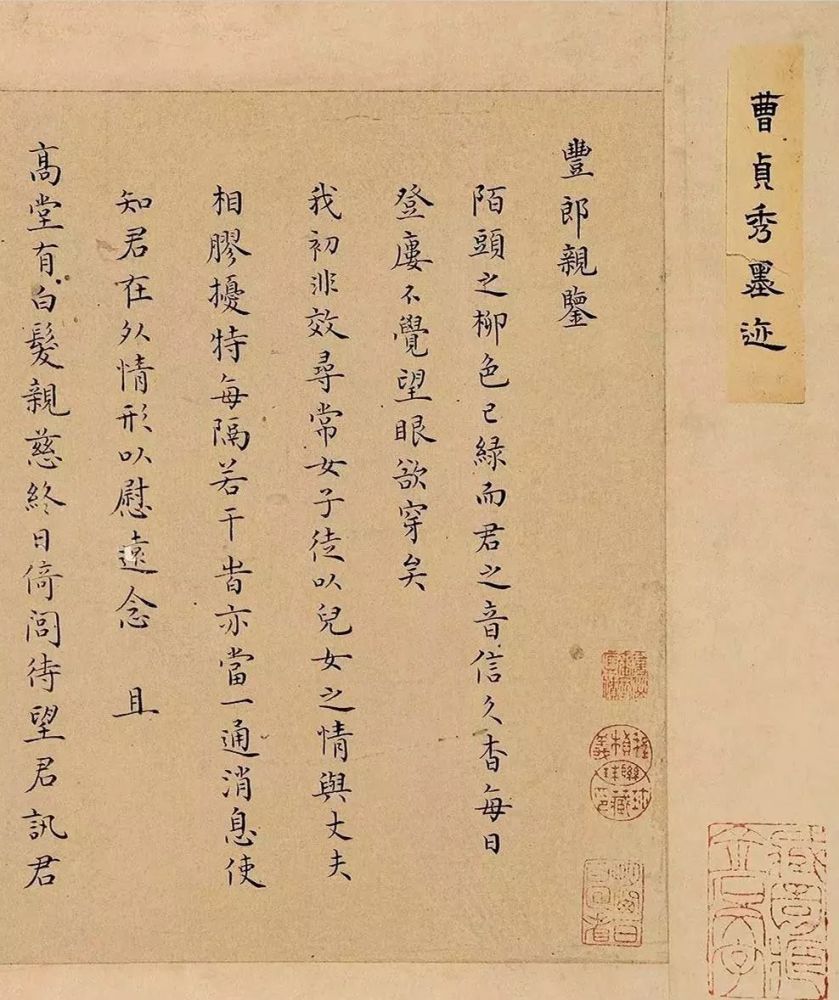 曹貞秀墨迹
豐郎親鑒
陌頭之柳色已綠而君之音信久杳每日
登廔不覺望眼欲穿矣
我初非效尋常女子徒以兒女之情與丈夫
相膠擾特每隔若干昔亦當一通消息使
知君在外情形以慰遠念 且
高堂有白髮親慈終日倚閭待望君訊君